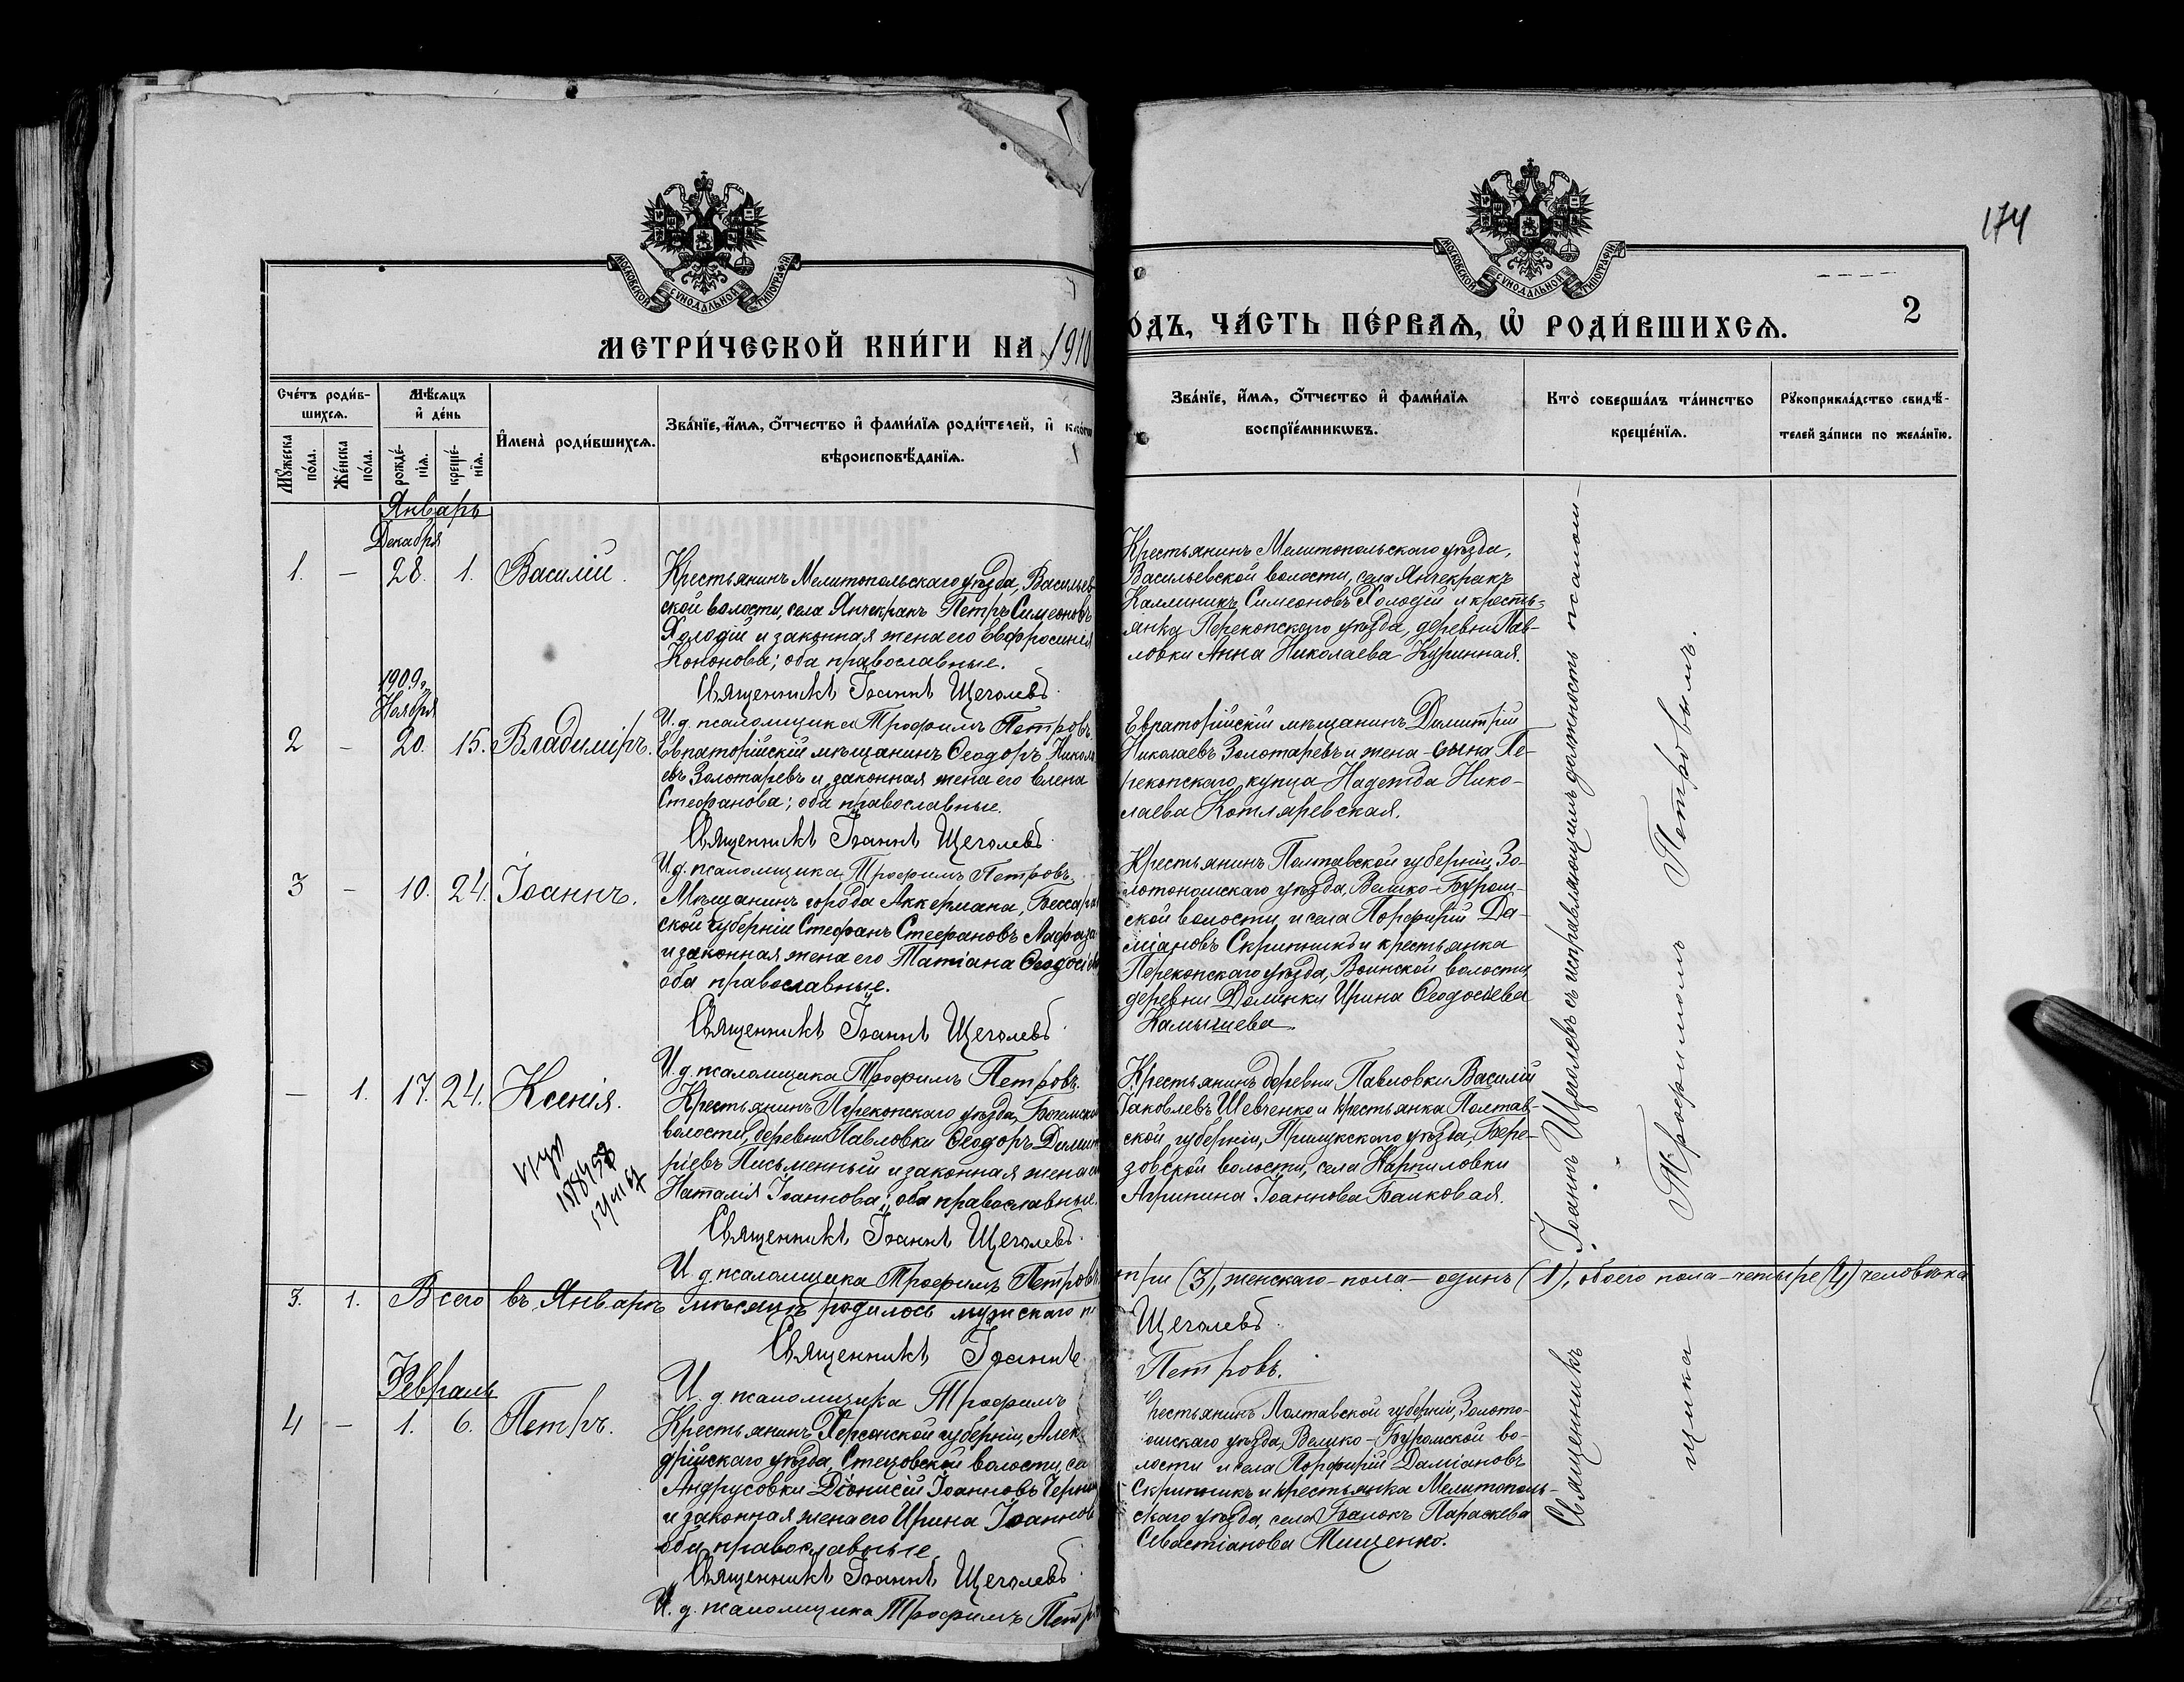 174
МОСКОВСКОЙ СѴНОДАЛЬНОЙ ТИПОГРАФІИ
МОСКОВСКОЙ СѴНОДАЛЬНОЙ ТИПОГРАФІИ
2
МЕТРИ́ЧЕСКОЙ КНИ́ГИ НА 1910
О́ДЪ, ЧА́СТЬ ПЕ́РВАѦ, Ѡ҆ РОДИ́ВШИХСѦ.
Сче́тъ роди́в-
шихсѧ.
Мꙋ́жеска по́ла.
Же́нска по́ла.
Мѣ́сѧцъ
и҆ де́нь
рожде́-
нїѧ.
креще́-
нїѧ.
И҆мена̀ роди́вшихсѧ.
Зва́нїе, и҆́мѧ, ѻ҆́тчество и҆ фами́лїѧ роди́телей, и҆
вѣроисповѣ́данїѧ.
Зва́нїе, и҆́мѧ, ѻ҆́тчество и҆ фами́лїѧ
воспрїе́мникѡвъ.
Кто̀ соверша́лъ та́инство
креще́нїѧ.
Рꙋкоприкла́дство свидѣ́-
телей за́писи по жела́нїю.
Январь
Декабря
1. — 28. 1. Василій.
Крестьянинъ Мелитопольскаго уѣзда, Васильев
ской волости, села Янчекракъ Петръ Симеоновъ
Холодій и законная жена его Евфросинія
Кононова; оба православные.
Священникъ Іоаннъ Щеголевъ.
И. д. псаломщика Трофимъ Петровъ.
Крестьянинъ Мелитопольскаго уѣзда,
Васильевской волости, села Янчекракъ
Каллиникъ Симеоновъ Холодій и кресть-
янка Перекопскаго уѣзда, деревни Пав-
ловки Анна Николаева Куринная.
1909 г.
Ноября
2 — 20. 15. Владиміръ.
Евпаторійскій мѣщанинъ Ѳеодоръ Никола
евъ Золотаревъ и законная жена его Елена
Стефанова; оба православные.
Священникъ Іоаннъ Щеголевъ.
И. д. псаломщика Трофимъ Петровъ.
Евпаторійскій мѣщанинъ Димитрій
Николаевъ Золотаревъ и жена сына Пе-
рекопскаго купца Надежда Нико-
лаева Котляревская.
3 — 10. 24. Іоаннъ.
Мѣщанинъ города Аккермана, Бессара
ской губерніи Стефанъ Стефановъ
и законная жена его Татіана Ѳеодосіе
оба православные.
Священникъ Іоаннъ Щеголевъ.
И. д. псаломщика Трофимъ Петровъ.
Крестьянинъ Полтавской губерніи, Зо-
лотоношскаго уѣзда, Велико-Буром-
ской волости и села Порфирій Да-
міановъ Скрипникъ и крестьянка
Перекопскаго уѣзда, Воинской волости
деревни Долинки Ирина Ѳеодосіева
Камышева.
— 1. 17. 24. Ксенія.
Крестьянинъ Перекопскаго уѣзда, Богемск
волости, деревни Павловки Ѳеодоръ Димит
ріевъ Письменный и законная жена
Наталія Іоаннова; оба православные.
Священникъ Іоаннъ Щеголевъ.
И. д. псаломщика Трофимъ Петровъ.
Крестьянинъ деревни Павловки Василій
Іаковлевъ Шевченко и крестьянка Полтав-
ской губерніи, Прилукскаго уѣзда, Бере-
зовской волости, села Карпиловки
Агрипина Іоаннова Байковая.
3. 1. Всего въ Январѣ мѣсяцѣ родилось мужскаго п
три (3), женскаго пола — одинъ (1), обоего пола — четыре (4) человѣка
Священникъ Іоаннъ Щеголевъ.
И. д. псаломщика Трофимъ Петровъ.
Февраль
4 — 1. 6. Петръ.
Крестьянинъ Херсонской губерніи, Алек
дрійскаго уѣзда, Стецовской волости, се
Андрусовки Діонисій Іоанновъ Черн
и законная жена его Ирина Іоаннов
оба православные.
Священникъ Іоаннъ Щеголевъ.
И. д. псаломщика Трофимъ Петр
Крестьянинъ Полтавской губерніи, Золото-
ошскаго уѣзда, Велико-Буромской во-
лости и села Порфирій Даміановъ
Скрипникъ и крестьянка Мелитополь-
скаго уѣзда, села Балокъ Параскева
Севастіанова Мищенко.
Священникъ Іоаннъ Щеголевъ съ исправляющимъ должность псалом-
щика Трофимомъ Петровымъ.